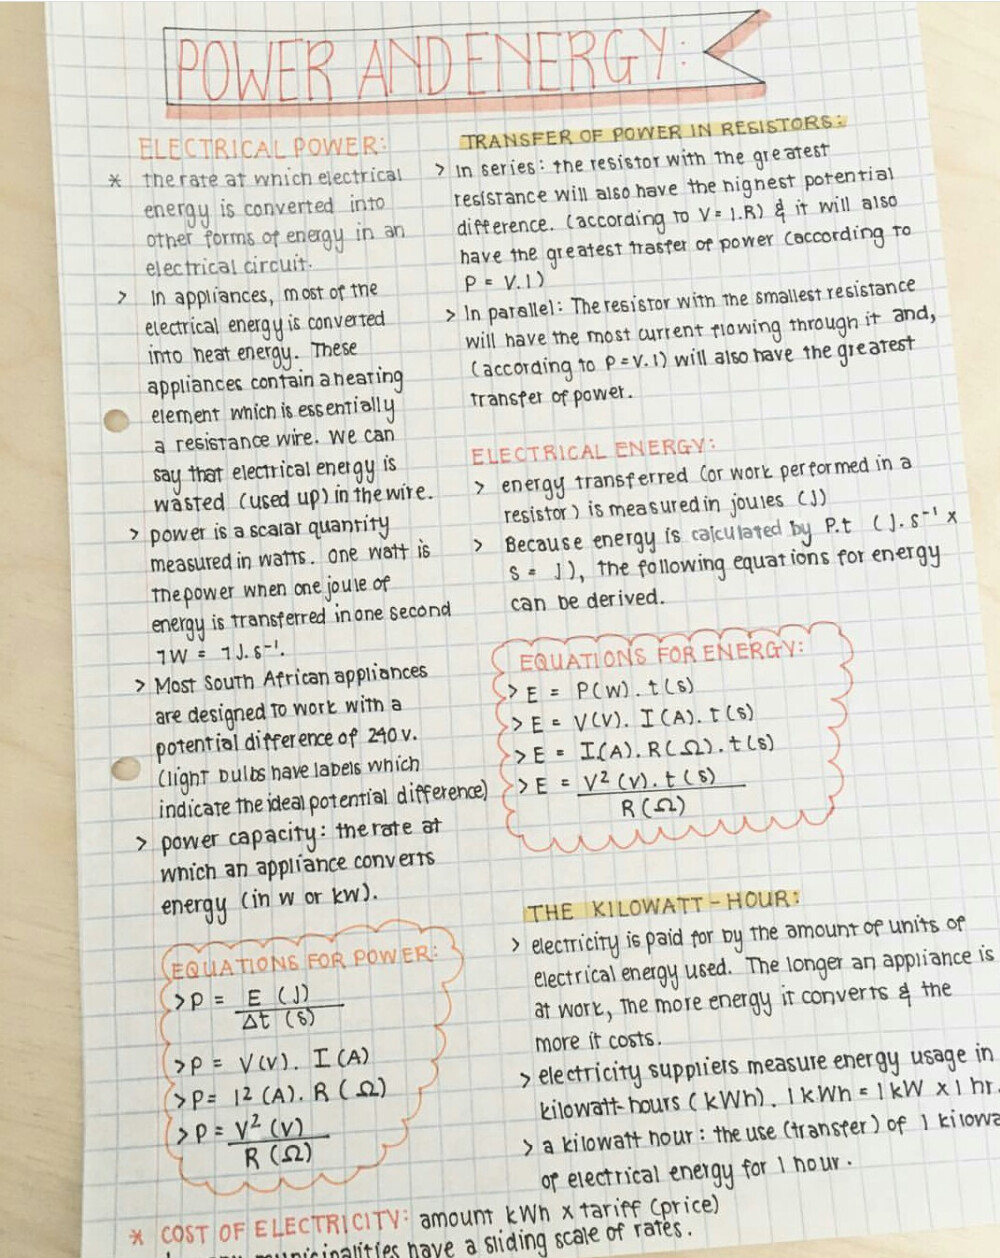 POWER AND ENERGY:
ELECTRICAL POWER:
* the rate at which electrical
energy is converted into
other forms of energy in an
electrical circuit.
> In appliances, most of the
electrical energy is converted
into heat energy. These
appliances contain a heating
element which is essentially
a resistance wire. We can
say that electrical energy is
wasted (used up) in the wire.
> power is a scalar quantity
measured in watts. One watt is
the power when one joule of
energy is transferred in one second
1W = 1J.s⁻¹.
> Most South African appliances
are designed to work with a
potential difference of 240 v.
(light bulbs have labels which
indicate the ideal potential difference)
> power capacity: the rate at
which an appliance converts
energy (in w or kw).
EQUATIONS FOR POWER:
> P = E (J)
Δt (s)
> P = V(V). I(A)
> P = I² (A). R (Ω)
> P = V² (V)
R (Ω)
TRANSFER OF POWER IN RESISTORS:
> In series: the resistor with the greatest
resistance will also have the highest potential
difference. (according to V = I.R) & it will also
have the greatest trasfer of power (according to
P = V.I)
> In parallel: The resistor with the smallest resistance
will have the most current flowing through it and,
(according to P = V.I) will also have the greatest
transfer of power.
ELECTRICAL ENERGY:
> energy transferred (or work performed in a
resistor) is measured in joules (J)
> Because energy is calculated by P.t (J.s⁻¹ x
s = J), the following equations for energy
can be derived.
EQUATIONS FOR ENERGY:
> E = P(W). t(s)
> E = V(V). I(A). t(s)
> E = I(A). R(Ω). t(s)
> E = V² (V). t(s)
R (Ω)
THE KILOWATT-HOUR:
> electricity is paid for by the amount of units of
electrical energy used. The longer an appliance is
at work, the more energy it converts & the
more it costs.
> electricity suppliers measure energy usage in
kilowatt-hours (kWh). 1 kWh = 1 kW x 1 hr.
> a kilowatt hour: the use (transfer) of 1 kilowa
of electrical energy for 1 hour.
* COST OF ELECTRICITY: amount kWh x tariff (price)
municipalities have a sliding scale of rates.